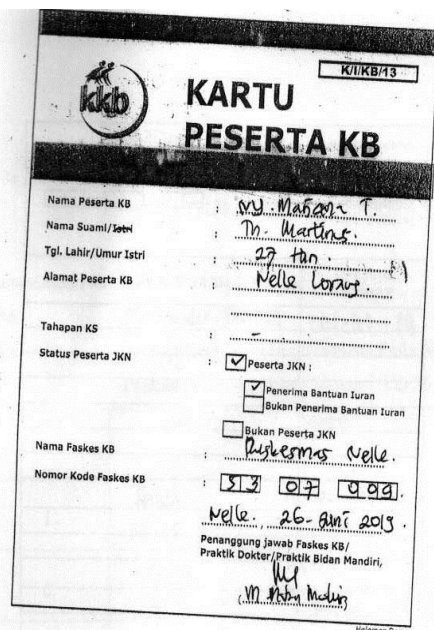 kkb
K/I/KB/13
KARTU
PESERTA KB
Nama Peserta KB : Ny. Mariana T.
Nama Suami/Istri : Tn. Martinus.
Tgl. Lahir/Umur Istri : 27 thn.
Alamat Peserta KB : Nelle Lorang.
Tahapan KS : -
Status Peserta JKN : Peserta JKN :
Penerima Bantuan Iuran
Bukan Penerima Bantuan Iuran
Bukan Peserta JKN
Nama Faskes KB : Puskesmas Nelle.
Nomor Kode Faskes KB : 53 07 009.
Nelle, 26 - Juni 2019.
Penanggung jawab Faskes KB/
Praktik Dokter/Praktik Bidan Mandiri,
Halaman